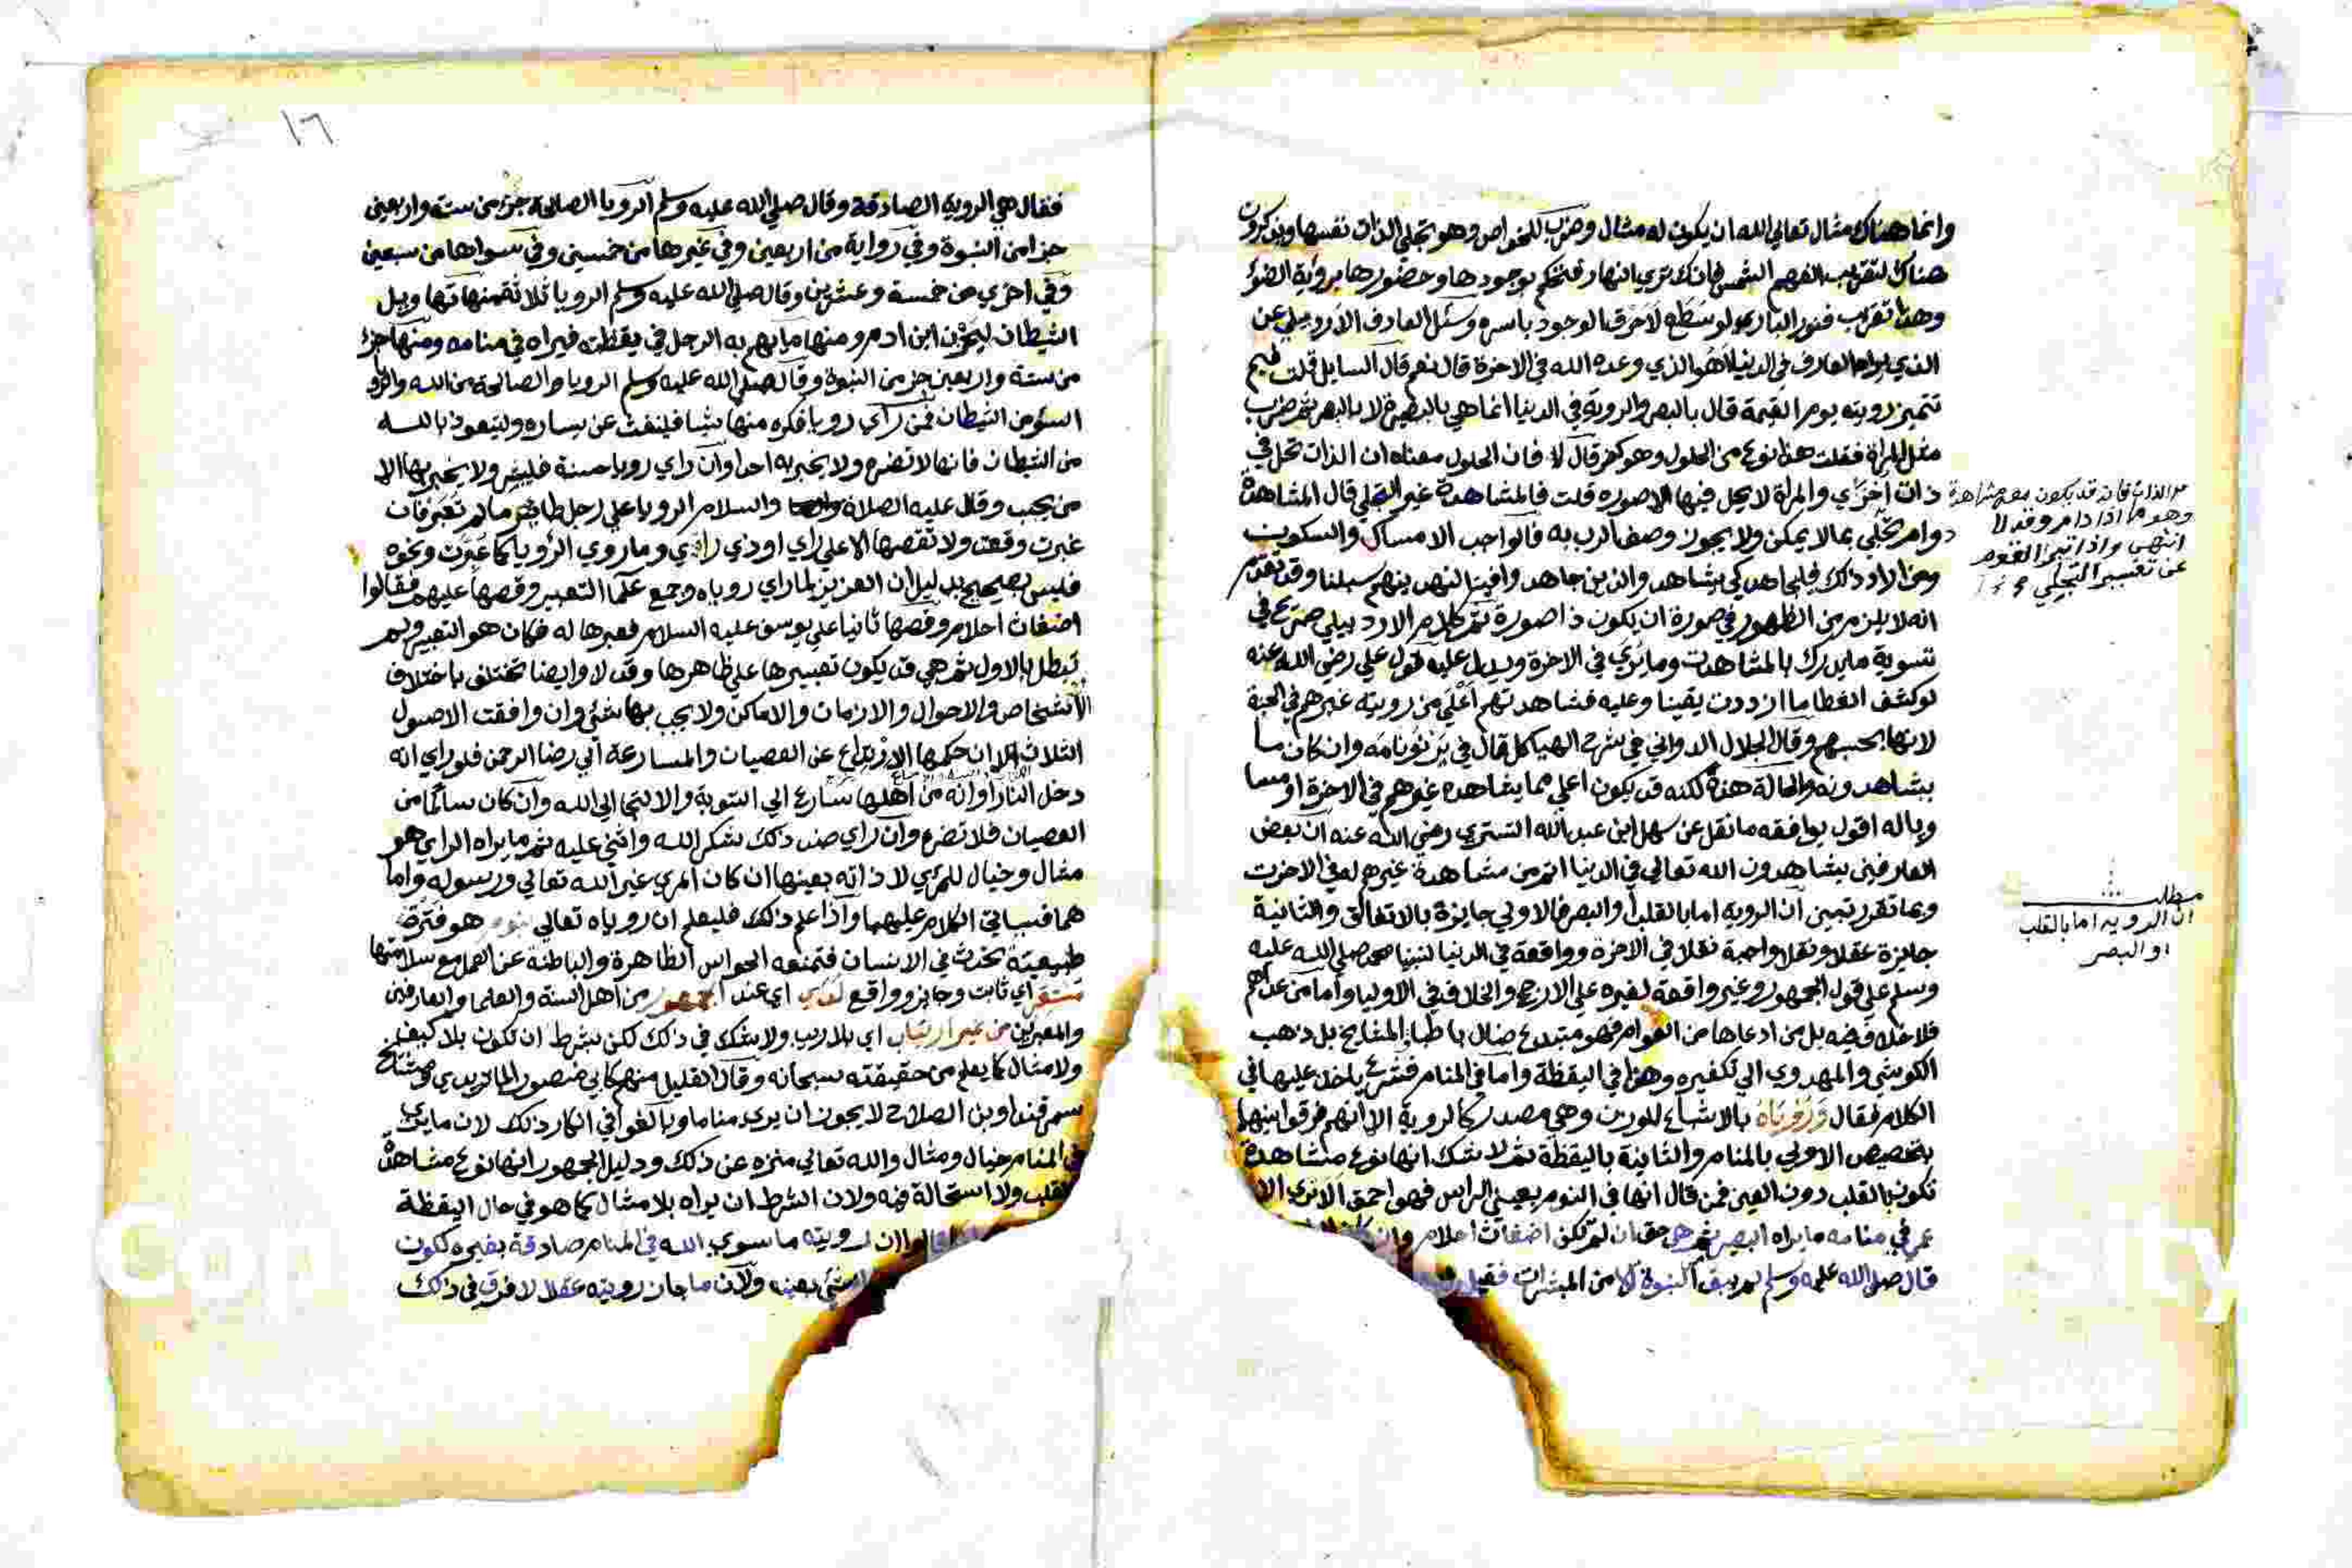 وانما هناك مثال تعالي الله ان يكون له مثال وضرب للخواص وهو تجلي الذات نفسها ويذكرون
هناك لتقريب الفهم الشمس فانك تري النهار فتحكم بوجودها وحضورها برؤية الضؤ
وهذا تقريب فنور الباري لو سطع لاحرق الوجود باسره وسئل العارف الاردبيلي عن
الذي يراه العارف في الدنيا اهو الذي وعده الله في الاخرة قال نعم قال السايل قلت فبم
تتميز رويته يوم القيمة قال بالبصر والروية في الدنيا انما هي بالبصيرة لا بالبصر ثم ضرب
مثل المراة فقلت هذا نوع من الحلول وهو كفر قال لا فان الحلول معناه ان الذات تحل في
ذات اخري والمراة لا يحل فيها الا صوره قلت فالمشاهدة غير التجلي قال المشاهدة
دوام تجلي بما لا يمكن ولا يجوز وصف الرب به فالواجب الامساك والسكوت
ومن اراد ذلك فليجاهد كي يشاهد والذين جاهدوا فينا لنهدينهم سبلنا وقد تقدم
انه لا يلزم من الظهور في صورة ان يكون ذا صورة ثم كلام الاردبيلي صريح في
تسوية ما يدرك بالمشاهدت وما يري في الاخرة ويدل عليه قول علي رضي الله عنه
لو كشف الغطا ما ازددت يقينا وعليه فشاهدتهم اعلي من روية غيرهم في الجنة
لانها بحسبهم وقال الجلال الدواني في شرح الهياكل قال في
يشاهدونه والحالة هذه لكنه قد يكون اعلي مما يشاهده غيرهم في الاخرة او مسا
وياله اقول يوافقه ما نقل عن سهل ابن عبد الله التستري رضي الله عنه ان بعض
العارفين يشاهدون الله تعالي في الدنيا اتم من مشاهدة غيرهم له في الاخرت
وبما تقرر تبين ان الروية اما بالقلب او البصر فالاولي جايزة بالاتفاق والثانية
جايزة عقلا ونقلا واجبة نقلا في الاخرة وواقعة في الدنيا لنبينا محمد صلي الله عليه
وسلم علي قول الجمهور وغير واقعة لغيره علي الارجح والخلاف في الاوليا واما من عداهم
فلا خلاف فيه بل من ادعاها من العوام فهو مبتدع ضال باطباق المشايخ بل ذهب
الكوشي والمهدوي الي تكفيره وهذا في اليقظة واما في المنام فشرع ياخذ عليها في
الكلام فقال وَرُؤيَاهُ بالاشباع للوزن وهي مصدر كالروية الا انهم فرقوا بينها
بتخصيص الاولي بالمنام والثانية باليقظة ثم لا شك انها نوع مشاهدة
تكون بالقلب دون العين فمن قال انها في النوم بعيني الراس فهو احمق الا تري الا
عمي في منامه ما يراه البصير ثم هي حق ان لم تكن اضغاث احلام وان
قال صلي الله عليه وسلم لم يبق من النبوة الا من المبشرات فقيل
الذات فانه قد يكون مع مشاهدة
وهو ما اذا دام وقد لا
انتهي واذا تبين
عن تفسير التجلي
مطلب
ان الروية اما بالقلب
او البصر
١٦
فقال هي الروية الصادقة وقال صلي الله عليه وسلم الرويا الصالحة جزء من ست واربعين
جزا من النبوة وفي رواية من اربعين وفي غيرها من خمسين وفي سواها من سبعين
وفي اخري من خمسة وعشرين وقال صلي الله عليه وسلم الرويا ثلاثة منها تهاويل
الشيطان ليحزن ابن ادم ومنها ما يهم به الرجل في يقظته فيراه في منامه ومنها جزء
من ستة واربعين جز من النبوة وقال صلي الله عليه وسلم الرويا الصالحة من الله والرويا
السؤ من الشيطان فمن راي رويا فكره منها شيا فلينفث عن يساره وليتعوذ بالله
من الشيطان فانها لا تضره ولا يخبر به احدا وان راي رويا حسنة فليبشر ولا يخبر بها الا
من يحب وقال عليه الصلاة والسلام الرويا علي رجل طاير ما لم تعبر فان
عبرت وقعت ولا تقصها الا علي راي او ذي راي وما روي الرؤيا كما عبرت ونحوه
فليس بصحيح بدليل ان العزيز لما راي روياه وجمع علما التعبير وقصها عليهم فقالوا
اضغاث احلام وقصها ثانيا علي يوسف عليه السلام فعبرها له فكان هو التعبير ولم
تبطل بالاول ثم هي قد يكون تعبيرها علي ظاهرها وقد لا وايضا تختلف باختلاف
الاشخاص والاحوال والازمان والاماكن ولا يجب بها شئ وان وافقت الاصول
الثلاث الا ان حكمها الارتداع عن العصيان والمسارعة الي رضا الرحمن فلو راي انه
دخل النار او انه من اهلها سارع الي التوبة والالتجا الي الله وان كان سالما من
العصيان فلا تضره وان راي ضد ذلك شكر الله واثني عليه ثم ما يراه الراي هو
مثال وخيال للمري لا ذاته بعينها ان كان المري غير الله تعالي ورسوله واما
هما فسياتي الكلام عليهما واذا علم ذلك فليعلم ان روياه تعالي بنوم هو فترة
طبيعية تحدث في الانسان فتمنعه الحواس الظاهرة والباطنة عن العمل مع سلامتها
اي ثابت وجايز وواقع لدي اي عند الجمهور من اهل السنة والعلما والعارفين
والمعبرين من غير ارتياب اي بلا ريب ولا شك في ذلك لكن بشرط ان تكون بلا كيف
ولا مثال كما يعلم من حقيقته سبحانه وقال القليل منهم كابي منصور الماتريدي ومشايخ
سمرقند وابن الصلاح لا يجوز ان يري مناما وبالغوا في انكار ذلك لان ما يري
في المنام خيال ومثال والله تعالي منزه عن ذلك ودليل الجمهور انها نوع مشاهدة
القلب ولا استحالة فيه ولان الشرط ان يراه بلا مثال كما هو في حال اليقظة
قالوا ان رويته ما سوي الله في المنام صادقة بغيره لكون
الشئ بعينه ولان ما جاز رويته عقلا لا فرق في ذلك
Copy